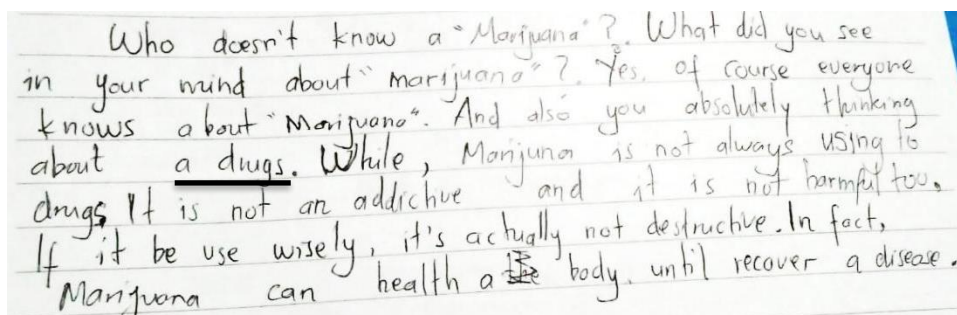 Who doesn't know a "Marijuana"?. What did you see
in your mind about "marijuana"?. Yes, of course everyone
knows about "Marijuana". And also you absolutely thinking
about a drugs. While, Marijuna is not always using to
drugs. It is not an addictive and it is not harmful too.
If it be use wisely, it's actually not destructive. In fact,
Marijuana can health a body. until recover a disease.